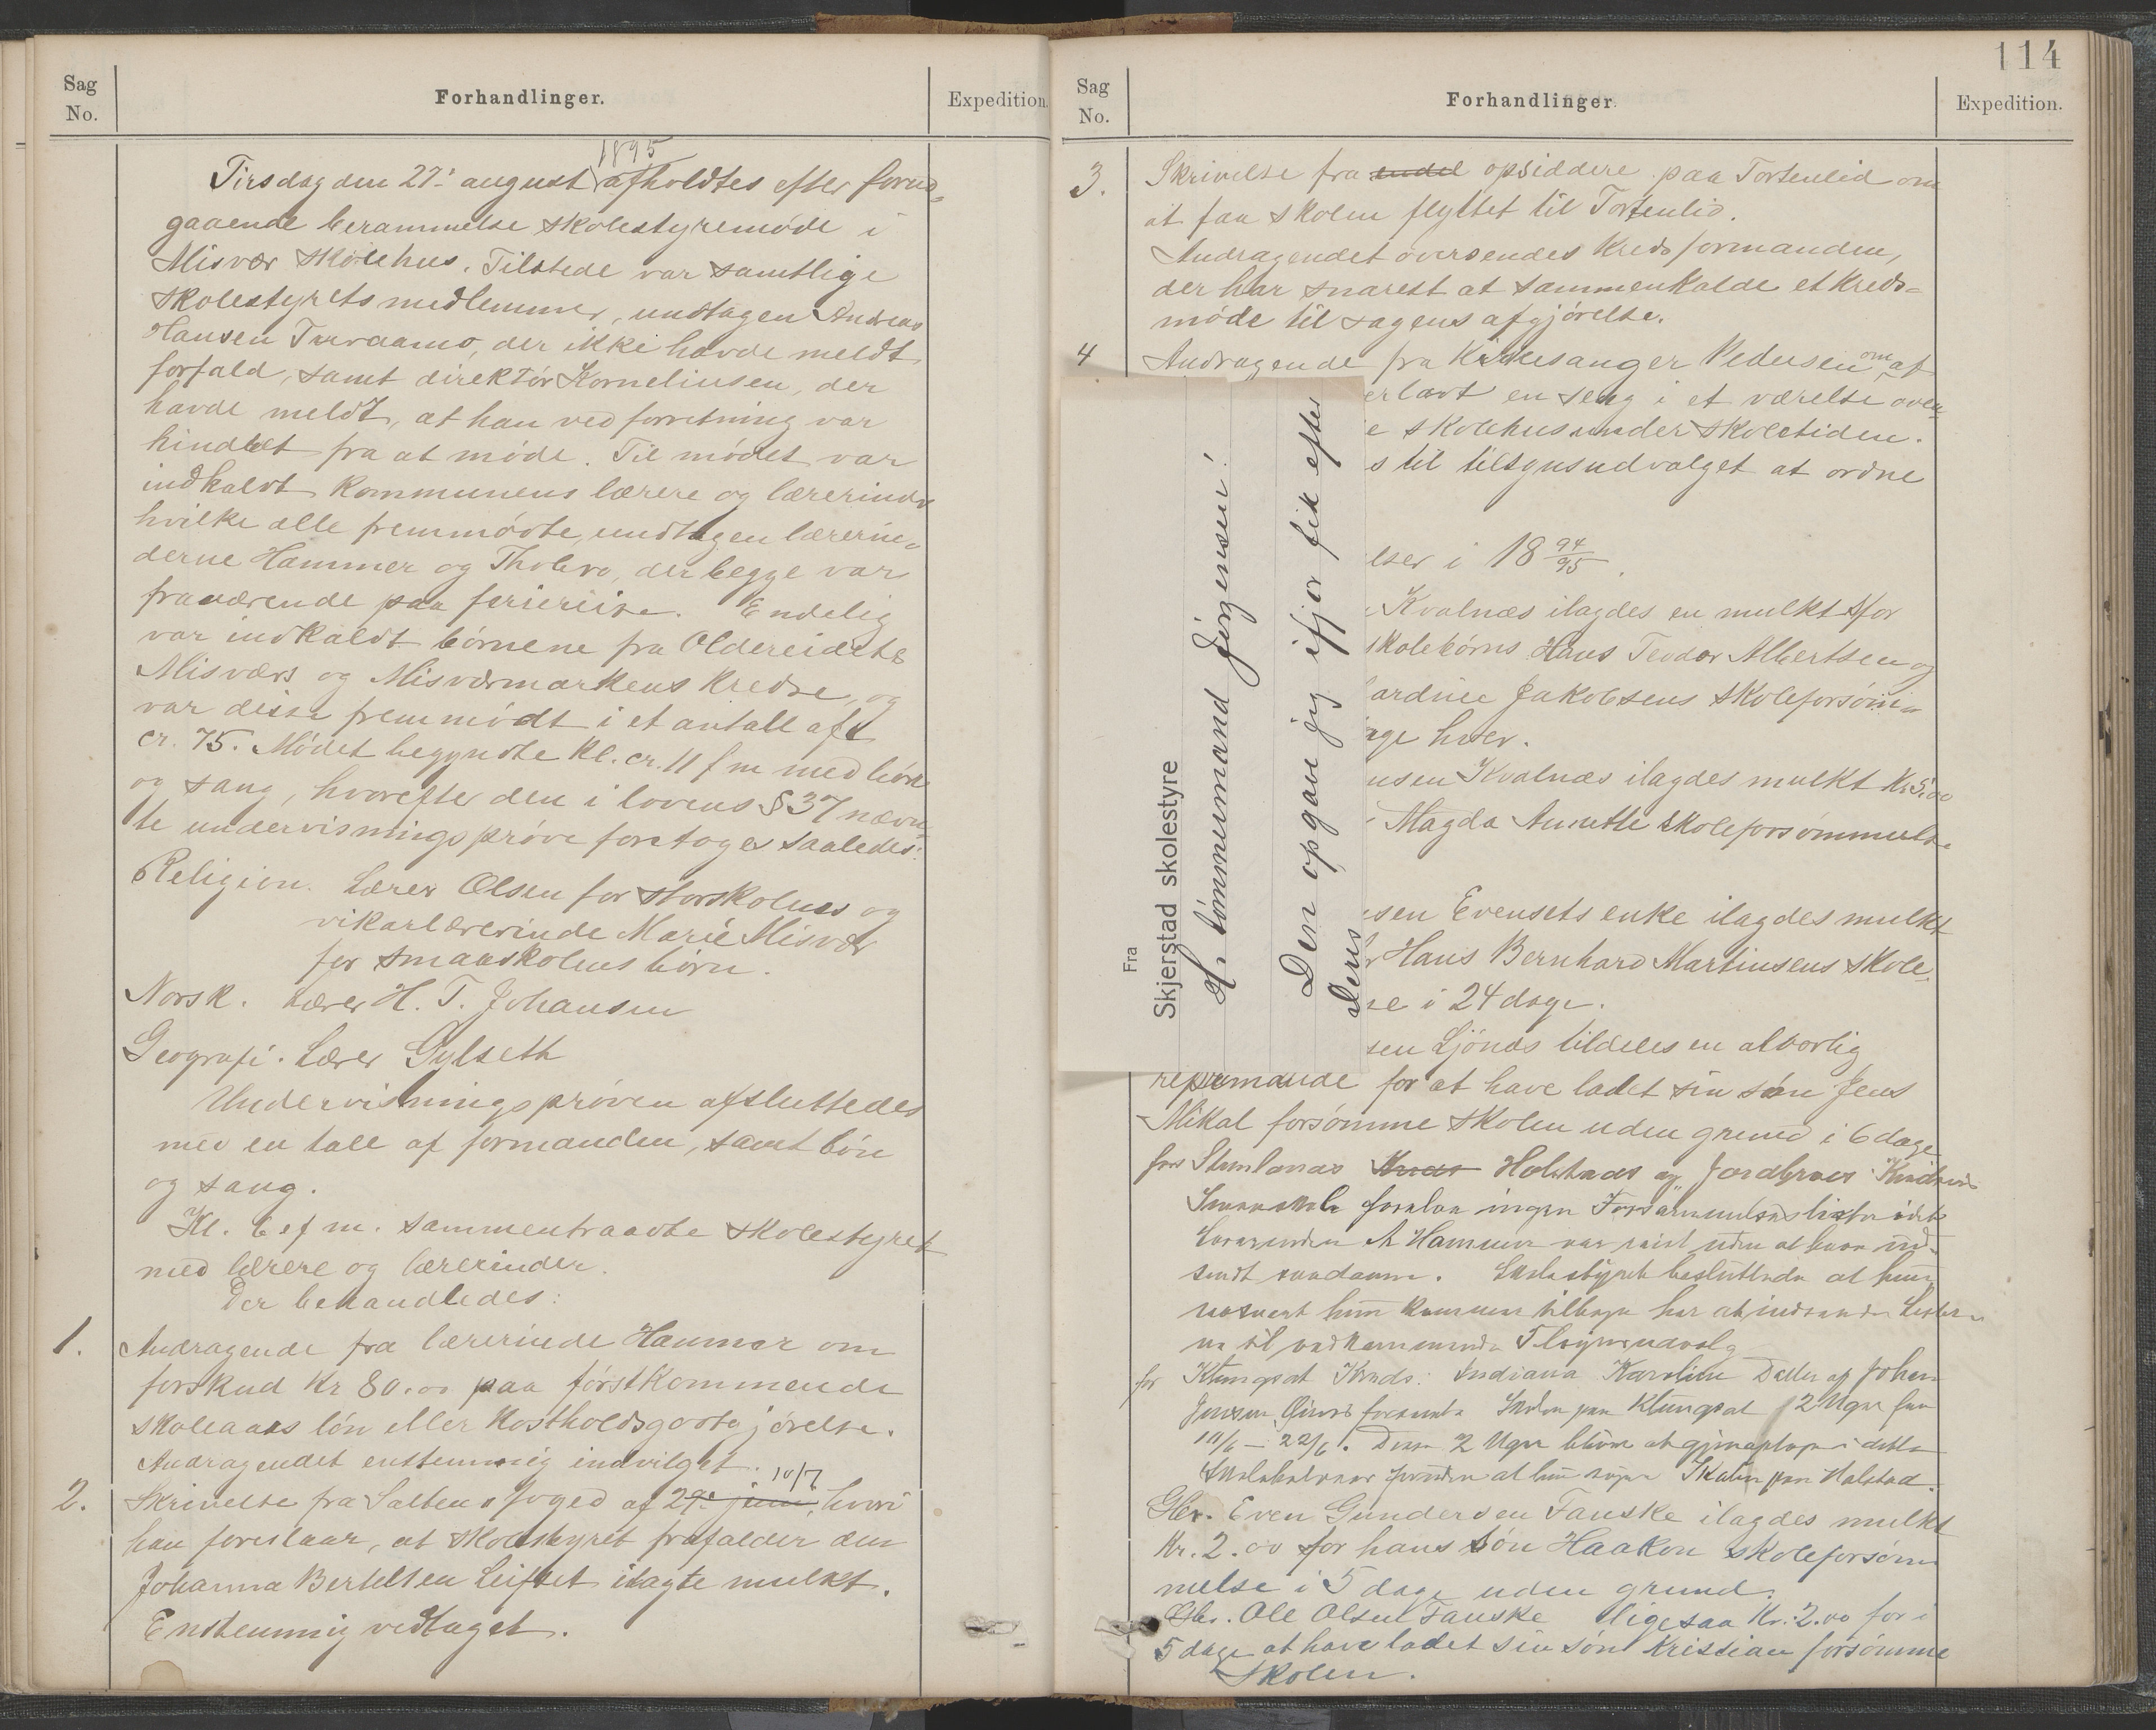 Sag
No.
Forhandlinger.
Expedition.
1895
Tirsdag den 27: august afholdtes efter forud-
gaaende berammelse skolestyremøde i
Misvær skolehus. Tilstede var samtlige
skolestyrets medlemmer, undtagen Andreas
Hansen Turvaamo, der ikke havde meldt
forfald, samt direktør Korneliusen, der
havde meldt, at han ved forretning var
hindret fra at møde. Til mødet var
indkaldt kommunens lærere og lærerinder
hvilke alle fremmødte, undtagen lærerin-
derne Hammer og Tholvo, der begge var
fraværende paa feriereise. Endelig
var indkaldt børnene fra Oldereidets
Misværs og Misværmarkens kredse, og
var disse fremmødt i et antall af
cr. 75. Mødet begyndte kl. cr. 11 fm med bøn
og sang, hvorefter den i lovens § 37 nævn-
te undervisningsprøve foretoges saaledes:
Religion. Lærer Olsen for storskolens og
vikarlærerinde Marie Misvær
for smaaskolens børn.
Norsk. Lærer H. T. Johansen
Geografi. Lærer Gylseth
Undervisningsprøven afsluttedes
med en tale af formanden, samt bøn
og sang.
Kl. 6 efm. sammentraadte skolestyret
med lærere og lærerinder.
Der behandledes:
1. Andragende fra lærerinde Hammer om
forskud Kr 80.00 paa førstkommende
skoleaars løn eller kostholdsgodtgjørelse.
Andragendet enstemmig indvilget.
10/7
2. Skrivelse fra Saltens foged af 29de juni, hvori
han foreslaar, at skolestyret frafalder den
Johanna Bertelsen Leifset ilagte mulkt.
Enstemmig vedtaget.
114
Sag
No.
Forhandlinger.
Expedition.
3. Skrivelse fra endel opsiddere paa Tortenlid om
at faa skolen flyttet til Tortenlid.
Andragendet oversendes kredsformanden,
der har snarest at sammenkalde et kreds-
møde til sagens afgjørelse.
4 Andragende fra Kirkesanger Pedersen om at
erladt en seng i et værelse oven-
e skolehus under skoletiden.
s til tilsynsudvalget at ordne
elser i 18 94/95.
Kvalnæs ilagdes en mulkt for
skolebørns Hans Teodor Albertsen og
ardine Jakobsens skoleforsøm-
age hver.
nsen Kvalnæs ilagdes mulkt Kr. 5.00
Magda Annette skoleforsømmelse
sen Evensets enke ilagdes mulkt
Hans Bernhard Martinsens skole-
se i 24 dage.
sen Ljønes tildeles en alvorlig
reprimande for at have ladet sin søn Jens
Mikal forsømme skolen uden grund i 6 dage
for Holstads og Jordbroens Kredses
Smaaskole forelaa ingen Forsømmelsesliste idet
Lærerinden A Hammer var reist uden at have ind-
sendt saadanne. Skolestyret besluttede at hun
snarest hun kommer tilbage har at indsende Lister-
ne til vedkommende Tilsynsudvalg
for Klungset Kreds: Indiana Karoline Datter af Johan
Jensen forsømte Skolen paa Klungset 2 Uger fra
10/6 – 22/6. Disse 2 Uger blive at gjenoptage i dette
Skolehalvaar foruden at hun søger Skolen paa Holstad.
Gbr. Even Gundersen Fauske ilagdes mulkt
Kr. 2.00 for hans søn Haakon skoleforsøm-
melse i 5 dage uden grund.
Gbr. Ole Olsen Fauske ligesaa Kr. 2.00 for i
5 dage at have ladet sin søn Kristian forsømme
skolen.
Fra
Skjerstad skolestyre
H. tømmermand Jörgensen!
Den opgave jeg ifjor fik efter
Deres